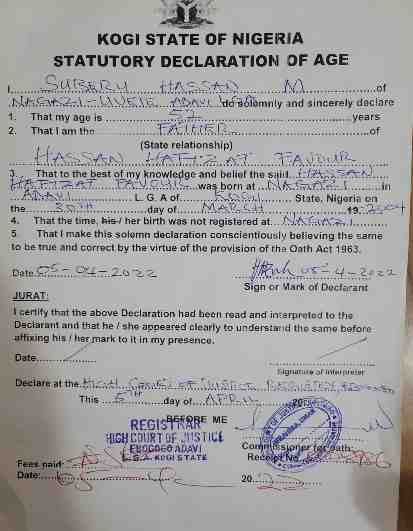 KOGI STATE OF NIGERIA
STATUTORY DECLARATION OF AGE
I, SUBERU HASSAN M of
NAGAZI-UVETE ADAVI LGA do solemnly and sincerely declare
1. That my age is 52 years
2. That I am the FATHER of
(State relationship)
HASSAN HAFIZAT FAVOUR
3. That to the best of my knowledge and belief the said HASSAN
HAFIZAT was born at NAGAZI in
ADAVI L.G.A of KOGI State, Nigeria on
the 30TH day of MARCH 19 2004
4. That the time, his / her birth was not registered at NAGAZI
5. That I make this solemn declaration conscientiously believing the same
to be true and correct by the virtue of the provision of the Oath Act 1963.
Date 05-04-2022 05-4-2022
Sign or Mark of Declarant
JURAT:
I certify that the above Declaration had been read and interpreted to the
Declarant and that he / she appeared clearly to understand the same before
affixing his / her mark to it in my presence.
Date
Signature of Interpreter
Declare at the HIGH COURT OF JUSTICE REGISTRY,
This 5TH day of APRIL 20
BEFORE ME
REGISTRAR
HIGH COURT OF JUSTICE
ADAVI
KOGI STATE
Commissioner for oath
Fees paid:
Receipt No
Date: 20